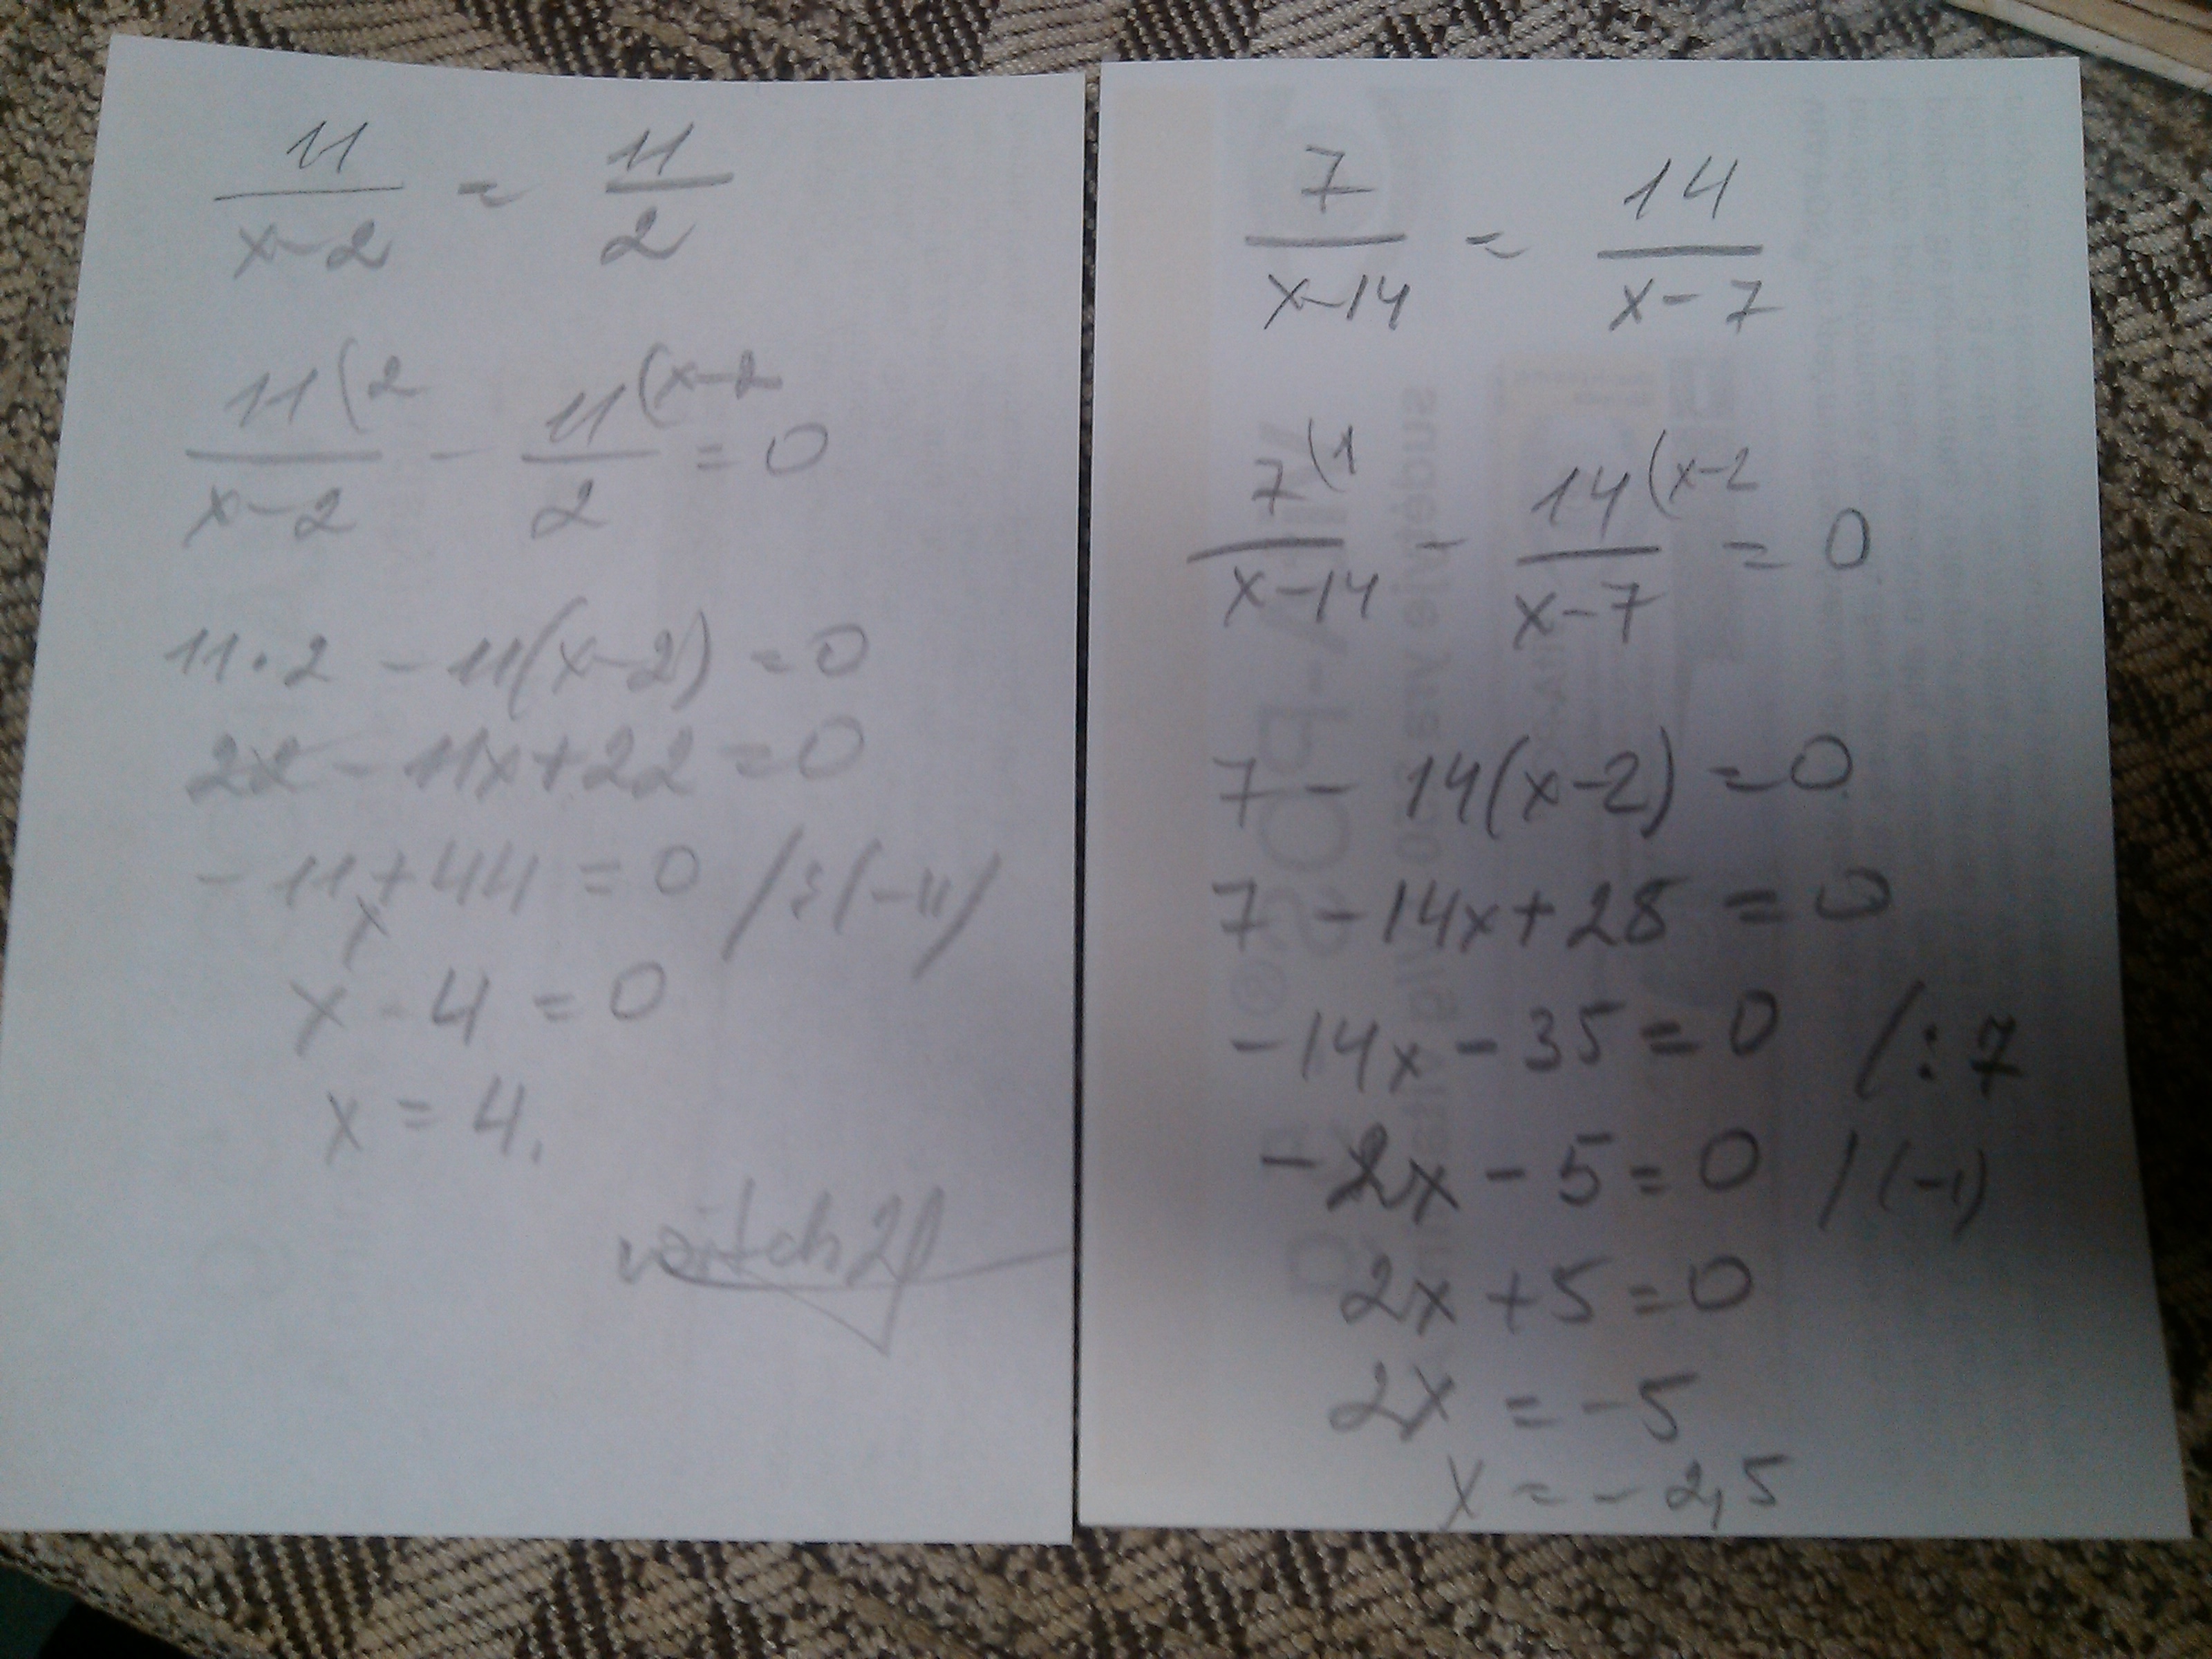 11/(x-2) = 11/2
11(2/(x-2) - 11(x-2/2 = 0
11·2 - 11(x-2) = 0
22 - 11x+22 = 0
-11x+44 = 0 /:(-11)/
x - 4 = 0
x = 4.
witch21
7/(x-14) = 14/(x-7)
7(1/(x-14) - 14(x-2/(x-7) = 0
7 - 14(x-2) = 0
7 - 14x+28 = 0
-14x - 35 = 0 /:7
-2x - 5 = 0 /(-1)
2x + 5 = 0
2x = -5
x = -2,5